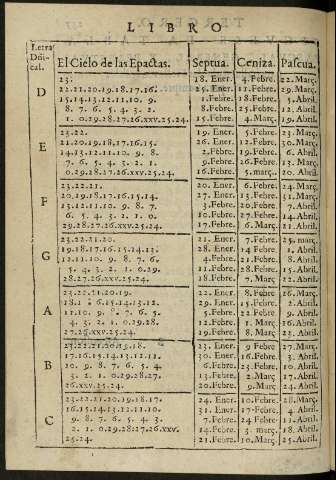 LIBRO
Letra Dñical. El Ciclo de las Epactas. Septua. Ceniza. Pascua.
D
23. 18. Ener. 4. Febre. 22. Març.
22.21.20.19.18.17.16. 25. Ener. 11. Febre. 29. Març.
15.14.13.12.11.10.9. 1. Febre. 18. Febre. 5. Abril.
8.7.6.5.4.3.2. 8. Febre. 25. Febre. 12. Abril.
1.0.29.28.27.26.xxv.25.24. 15. Febre. 4. Març. 19. Abril.
E
23.22. 19. Ener. 5. Febre. 23. Març.
21.20.19.18.17.16.15. 26. Ener. 12. Febre. 30. Març.
14.13.12.11.10.9.8. 2. Febre. 19. Febre. 6. Abril.
7.6.5.4.3.2.1. 9. Febre. 26. Febre. 13. Abril.
0.29.28.27.26.xxv.25.24. 16. Febre. 5. març. 20. Abril.
F
23.22.21. 20. Ener. 6. Febre. 24. Març.
20.19.18.17.16.15.14. 27. Ener. 13. Febre. 31. Març.
13.12.11.10.9.8.7. 3. Febre. 20. Febre. 7. Abril.
6.5.4.3.2.1.0. 10. Febre. 27. Febre. 14. Abril.
29.28.27.26.xxv.25.24. 17. Febre. 6. Març. 21. Abril.
G
23.22.21.20. 21. Ener. 7. Febre. 25. març.
19.18.17.16.15.14.13. 28. Ener. 14. Febre. 1. Abril.
12.11.10.9.8.7.6. 4. Febre. 21. Febre. 8. Abril.
5.4.3.2.1.0.29. 11. Febre. 28. Febre. 15. Abril.
28.27.26.xxv.25.24. 18. Febre. 7. Març. 22. Abril.
A
23.22.21.20.19. 22. Ener. 8. Febre. 26. Març.
18.17.16.15.14.13.12. 29. Ener. 15. Febre. 2. Abril.
11.10.9.8.7.6.5. 5. Febre. 22. Febre. 9. Abril.
4.3.2.1.0.29.28. 12. Febre. 1. Març. 16. Abril.
27.26.xxv.25.24. 19. Febre. 8. Març. 23. Abril.
B
23.22.21.20.19.18. 23. Ener. 9. Febre. 27. Març.
17.16.15.14.13.12.11. 30. Ener. 16. Febre. 3. Abril.
10.9.8.7.6.5.4. 6. Febre. 23. Febre. 10. Abril.
3.2.1.0.29.28.27. 13. Febre. 2. Març. 17. Abril.
26.xxv.25.24. 20. Febre. 9. Març. 24. Abril.
C
23.22.21.20.19.18.17. 24. Ener. 10. Febre. 28. Març.
16.15.14.13.12.11.10. 31. Ener. 17. Febre. 4. Abril.
9.8.7.6.5.4.3. 7. Febre. 24. Febre. 11. Abril.
2.1.0.29.28.27.26.xxv. 14. Febre. 3. març. 18. Abril.
25.24. 21. Febre. 10. Març. 25. Abril.